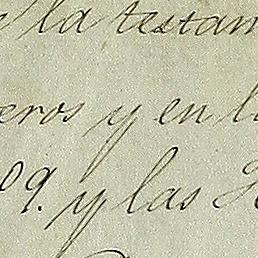 la testam
eros y en l
09. y las